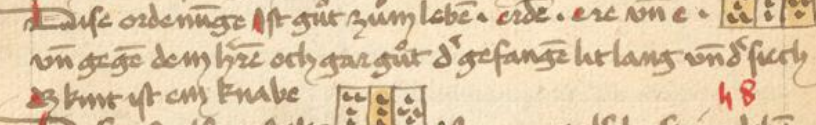 Dise ordenũge ist gůt zům lebē · erde · ere vn̄ e ·
vn̄ gegē dem hr̄ē och gar gůt dʼ gefangē lit lang vn̄ dʼ siech
dz kint ist ein knabe
48